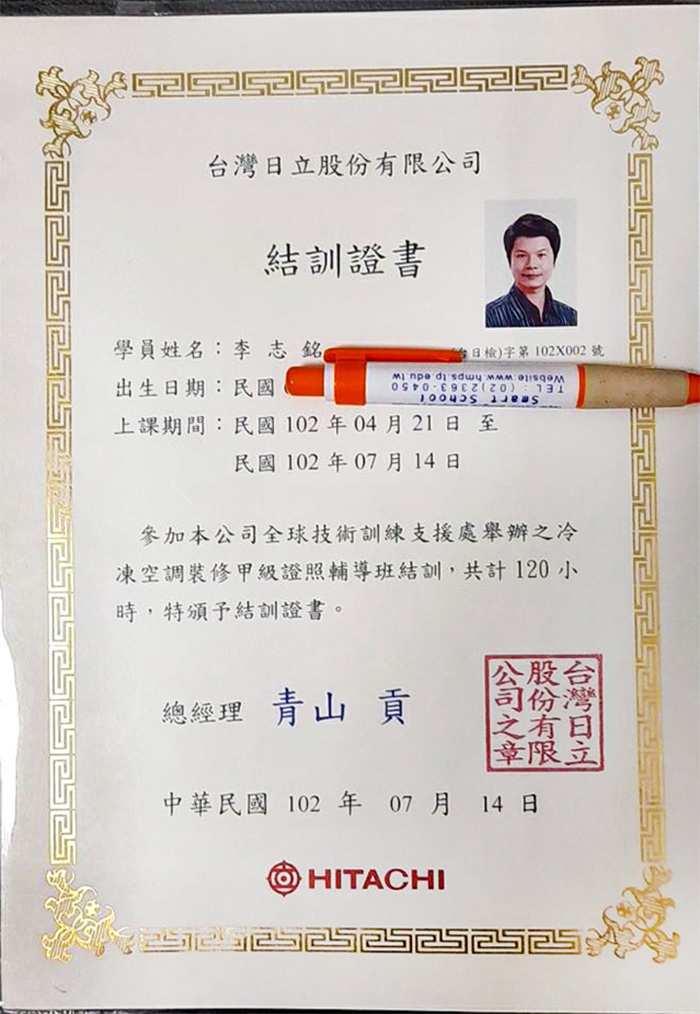 台灣日立股份有限公司
結訓證書
學員姓名：李 志 銘
日檢)字第 102X002 號
出生日期：民國
Smart School
TEL：(02)2363-0450
Website:www.hmps.tp.edu.tw
上課期間：民國 102 年 04 月 21 日 至
民國 102 年 07 月 14 日
參加本公司全球技術訓練支援處舉辦之冷
凍空調裝修甲級證照輔導班結訓，共計 120 小
時，特頒予結訓證書。
總經理 青山 貢
台灣日立
股份有限
公司之章
中華民國 102 年 07 月 14 日
HITACHI